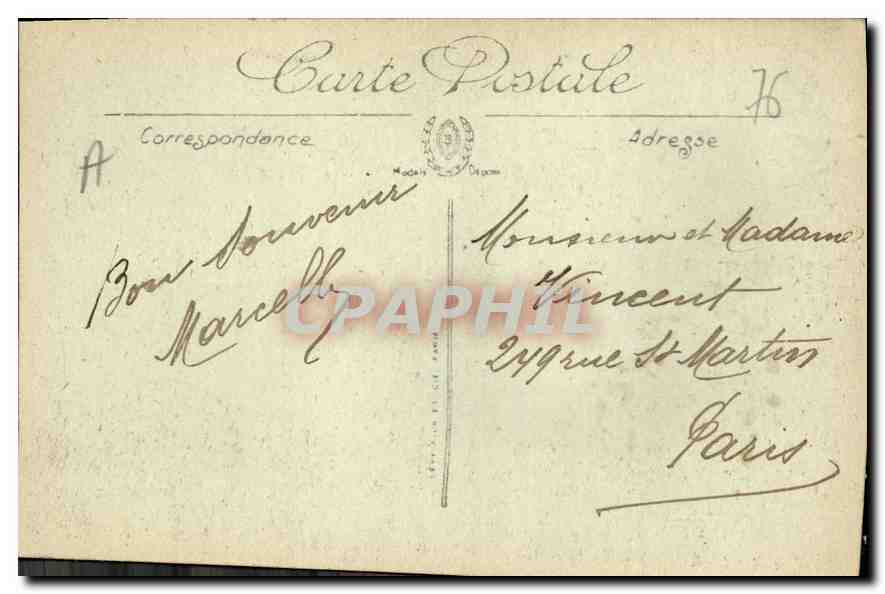 Carte Postale
76
Correspondance
Adresse
A
Modèle Déposé
Bon Souvenir
Marcelle
Monsieur et Madame
Vincent
249 rue St Martin
Paris
CPAPHIL
LÉVY FILS ET CIE, PARIS